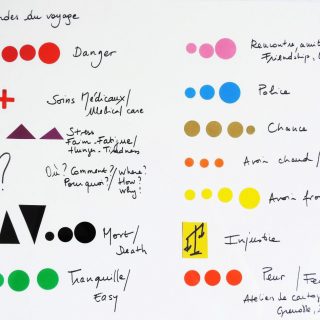 du voyage
Danger
Soins Médicaux/
Medical care
Stress
Faim. Fatigue/
Hunger. Tiredness
? Où? Comment?/Where?
Pourquoi?/ How?
Why?
Mort/
Death
Tranquille/
Easy
Rencontre,
Friendship,
Police
Chance
Avoir chaud/
Avoir
Injustice
Peur/
Atelier de